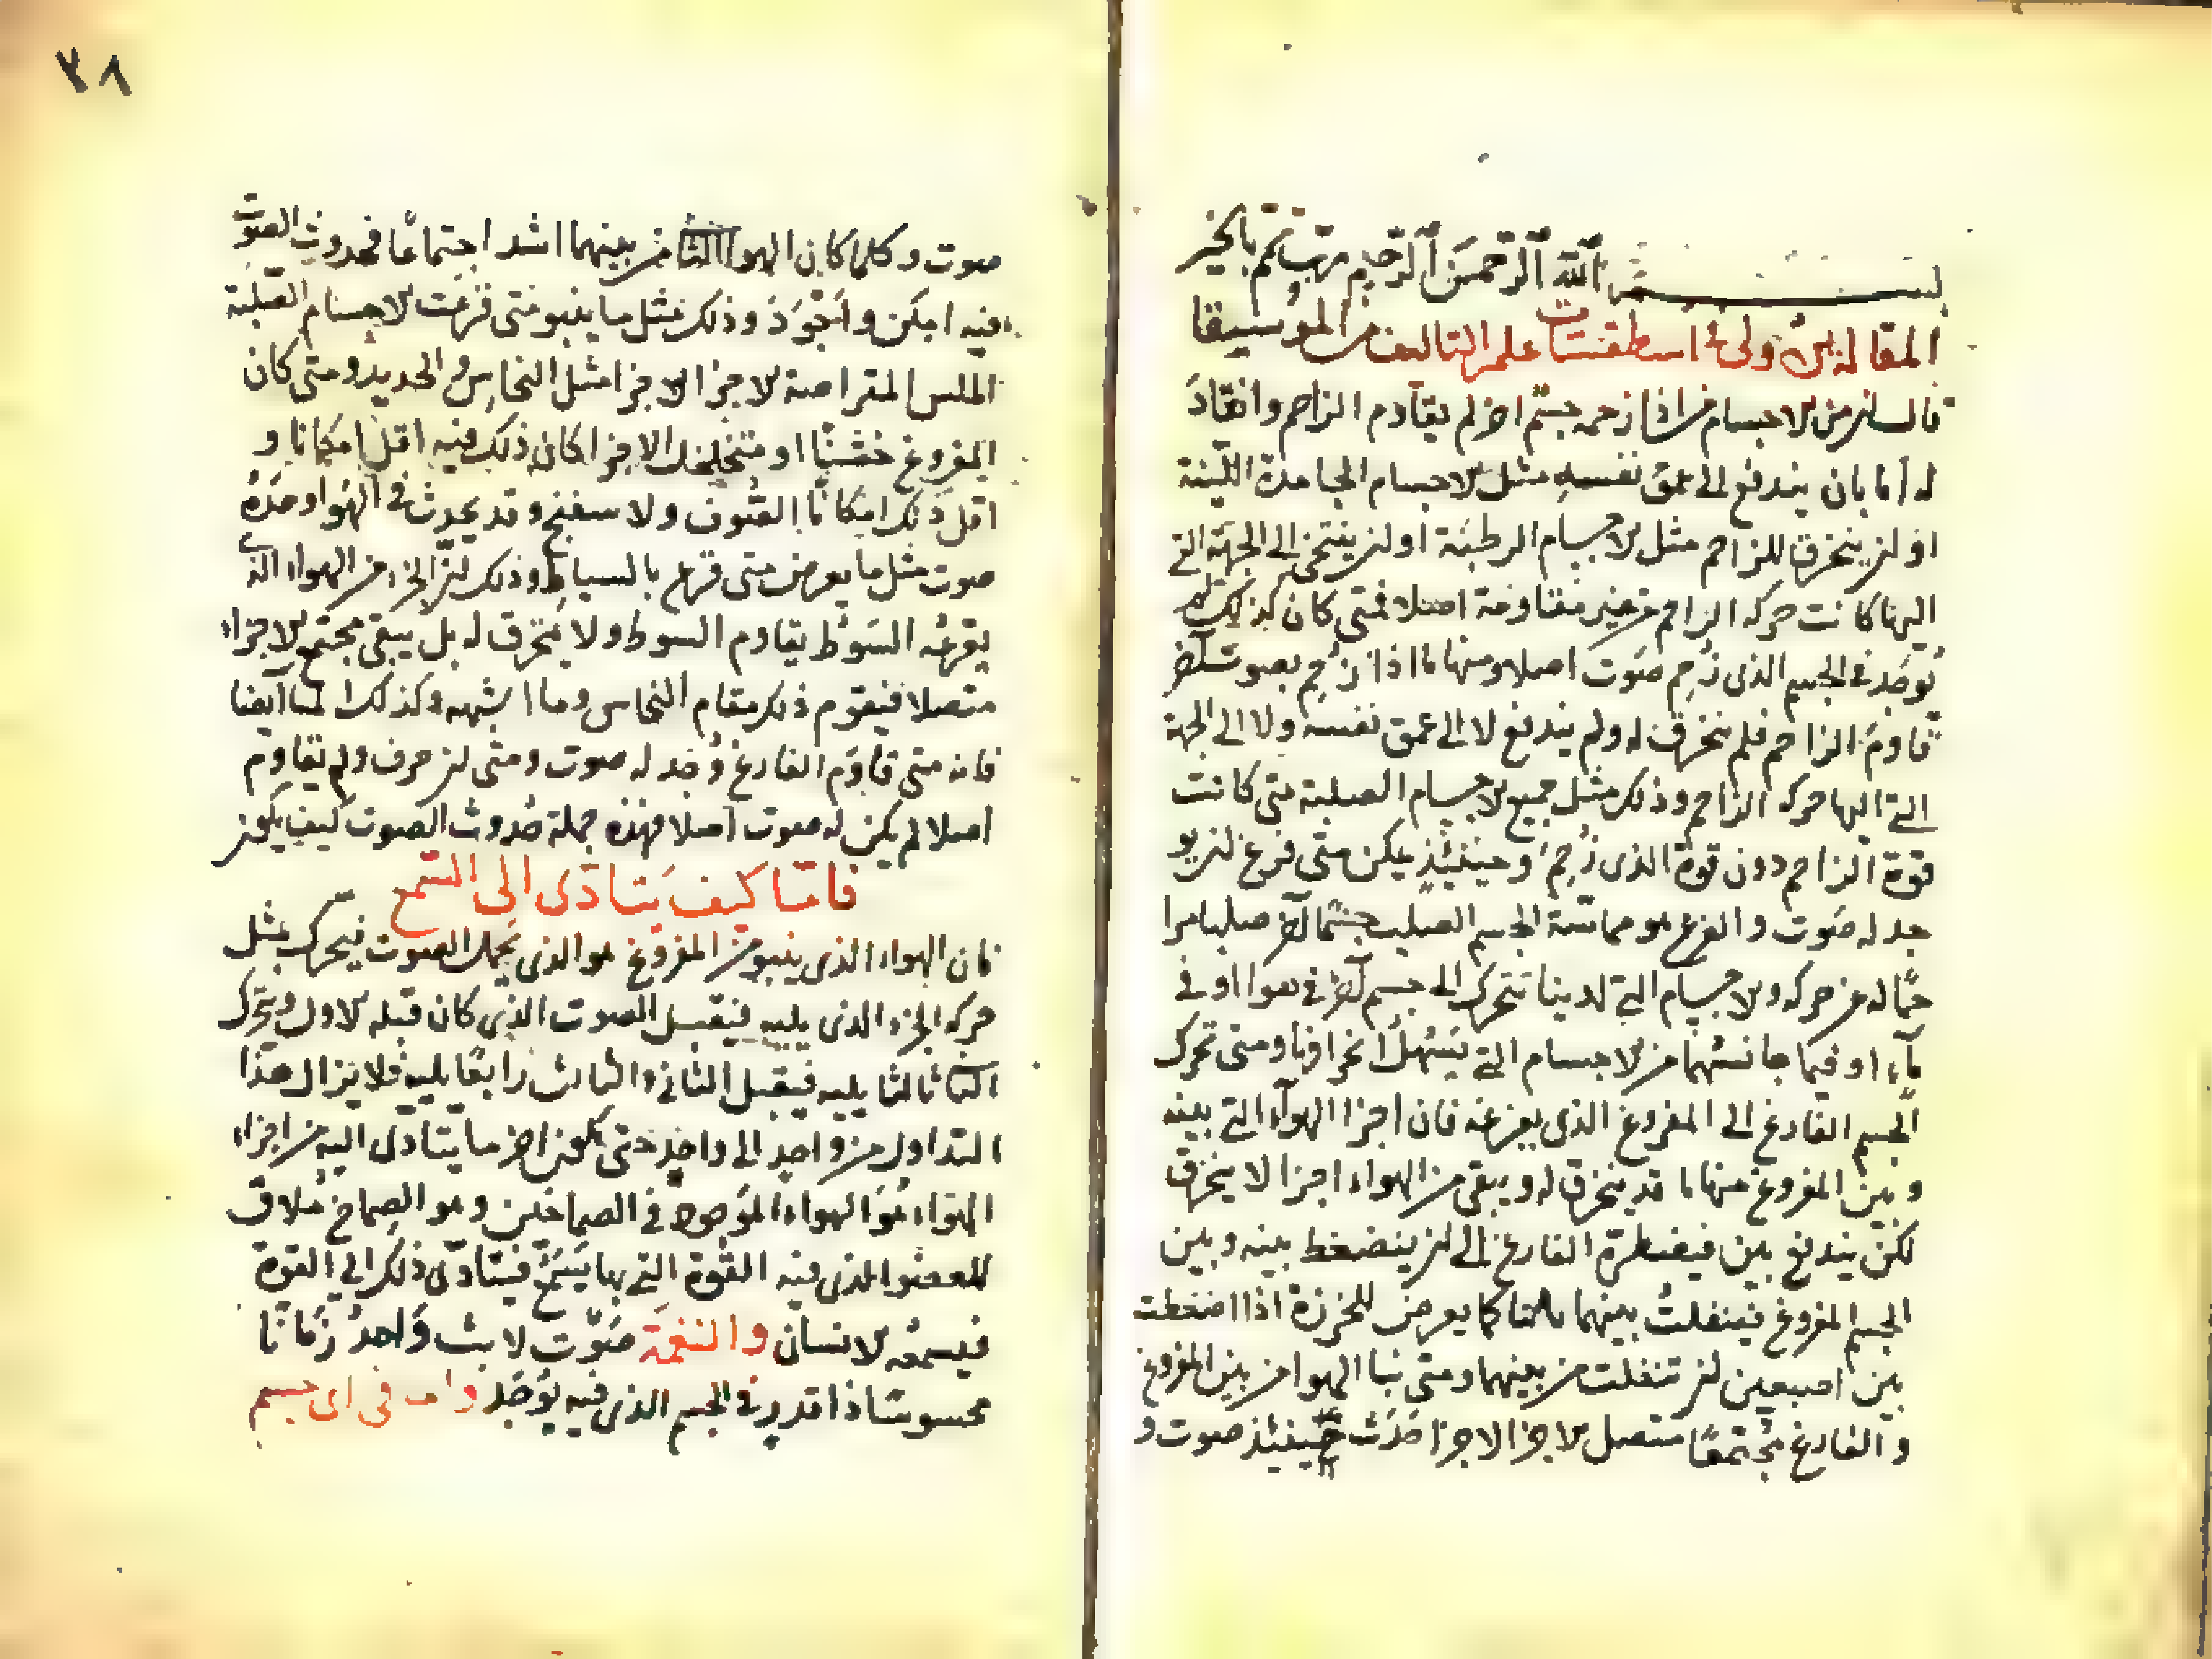 بسم الله الرحمن الرحيم رب تمم بالخير
المقالة الاولى فى اسطقسات علم التاليف من الموسيقا
قال ان من الاجسام ما اذا زحمه جسم اخر لم يقاوم الزاحم وانقاد
له اما بان يندفع الى عمق نفسه مثل الاجسام الجامدة اللينة
او ان ينخرق للزاحم مثل الاجسام الرطبة او ان يتنحى الى الجهة التى
اليها كانت حركة الزاحم من غير مقاومة اصلا فمتى كان كذلك لم
توجد فى الجسم الذى زحم صوت اصلا ومنها ما اذا زحم بصوت اخر
قاوم الزاحم فلم ينخرق له ولم يندفع لا الى عمق نفسه ولا الى الجهة
التى اليها حركة الزاحم وذلك مثل جميع الاجسام الصلبة متى كانت
قوة الزاحم دون قوة الذى زحم وحينئذ يمكن متى قرع ان يو
جد له صوت والقرع هو مماسة الجسم الصلب جسما اخر صلبا مزا
حما له عن حركة والاجسام التى لدينا تتحرك الى جسم اخر فى هوا او فى
ماء او فيما جانسهما من الاجسام التى يسهل انخراقها ومتى تحرك
الجسم القارع الى المقروع الذى يقرعه فان اجزا الهواء التى بينه
وبين المقروع منها ما قد ينخرق له ويبقى من الهواء اجزا لا ينخرق
لكن يندفع بين فيضطره القارع الى ان ينضغط بينه وبين
الجسم المقروع فينفلت بينهما كما يعرض للخرزة اذا انضغطت
بين اصبعين ان تنفلت من بينهما ومتى نبا الهوا من بين المقروع
والقارع مجتمعا متصل الاجزا حدث حينئذ صوت و
٣٨
صوت وكلما كان الهوا من بينهما اشد اجتماعا فحدوث الصوت
فيه امكن واجود وذلك مثل ما ينبو متى قرعت الاجسام الصلبة
الملس المتراصة الاجزا مثل النحاس والحديد ومتى كان
المقروع خشنا او متخلخل الاجزا كان ذلك فيه اقل امكانا و
اقل ذلك امكانا الصوف والاسفنج وقد يحدث فى الهواء وحده
صوت مثل ما يعرض متى قرع بالسياط وذلك ان الجزء من الهواء الذى
يقرعه السوط يقاوم السوط ولا ينخرق له بل يبقى مجتمع الاجزاء
متصلا فيقوم ذلك مقام النحاس وما اشبهه وكذلك الما ايضا
فانه متى قاوم القارع وجد له صوت ومتى انخرق ولم يقاوم
اصلا لم يكن له صوت اصلا فهذه جملة حدوث الصوت كيف يكون
فاما كيف يتادى الى السمع
فان الهواء الذى ينبو من المقروع هو الذى يحمل الصوت فيحرك بمثل
حركه الجزء الذى يليه فيقبل الصوت الذى كان قبله الاول ويحرك
الثانى ثالثا يليه فيقبل الثانى والثالث رابعا يليه فلا يزال هذا
التداول من واحد الى واحد حتى يكون اخر ما يتادى اليه من اجزاء
الهواء هو الهواء الموجود فى الصماخين وهو الصماخ ملاق
للعضو الذى فيه القوة التى بها يسمع فيتادى ذلك الى القوة
فيسمعه الانسان والنغمة صوت لابث واحد زمانا
محسوسا ذا قدر فى الجسم الذى فيه يوجد فى اى جسم